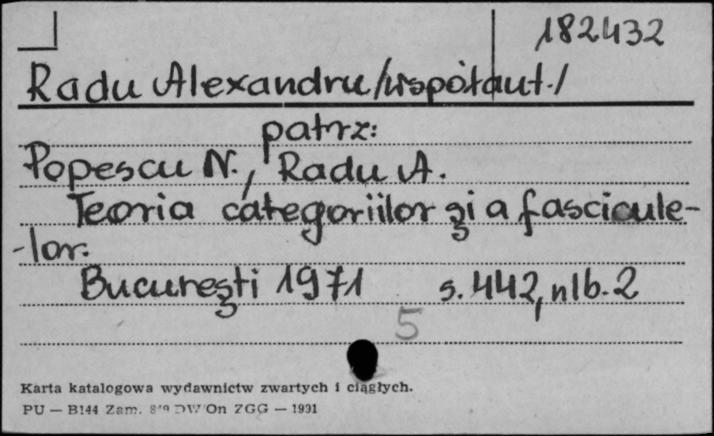 182432
Radu Alexandru /współaut./
patrz:
Popescu N., Radu A.
Teoria categoriilor și a fascicule-
-lor.
București 1971 s. 442, nlb. 2
5
Karta katalogowa wydawnictw zwartych i ciągłych.
PU — B144 Zam. DW On ZGG — 1991